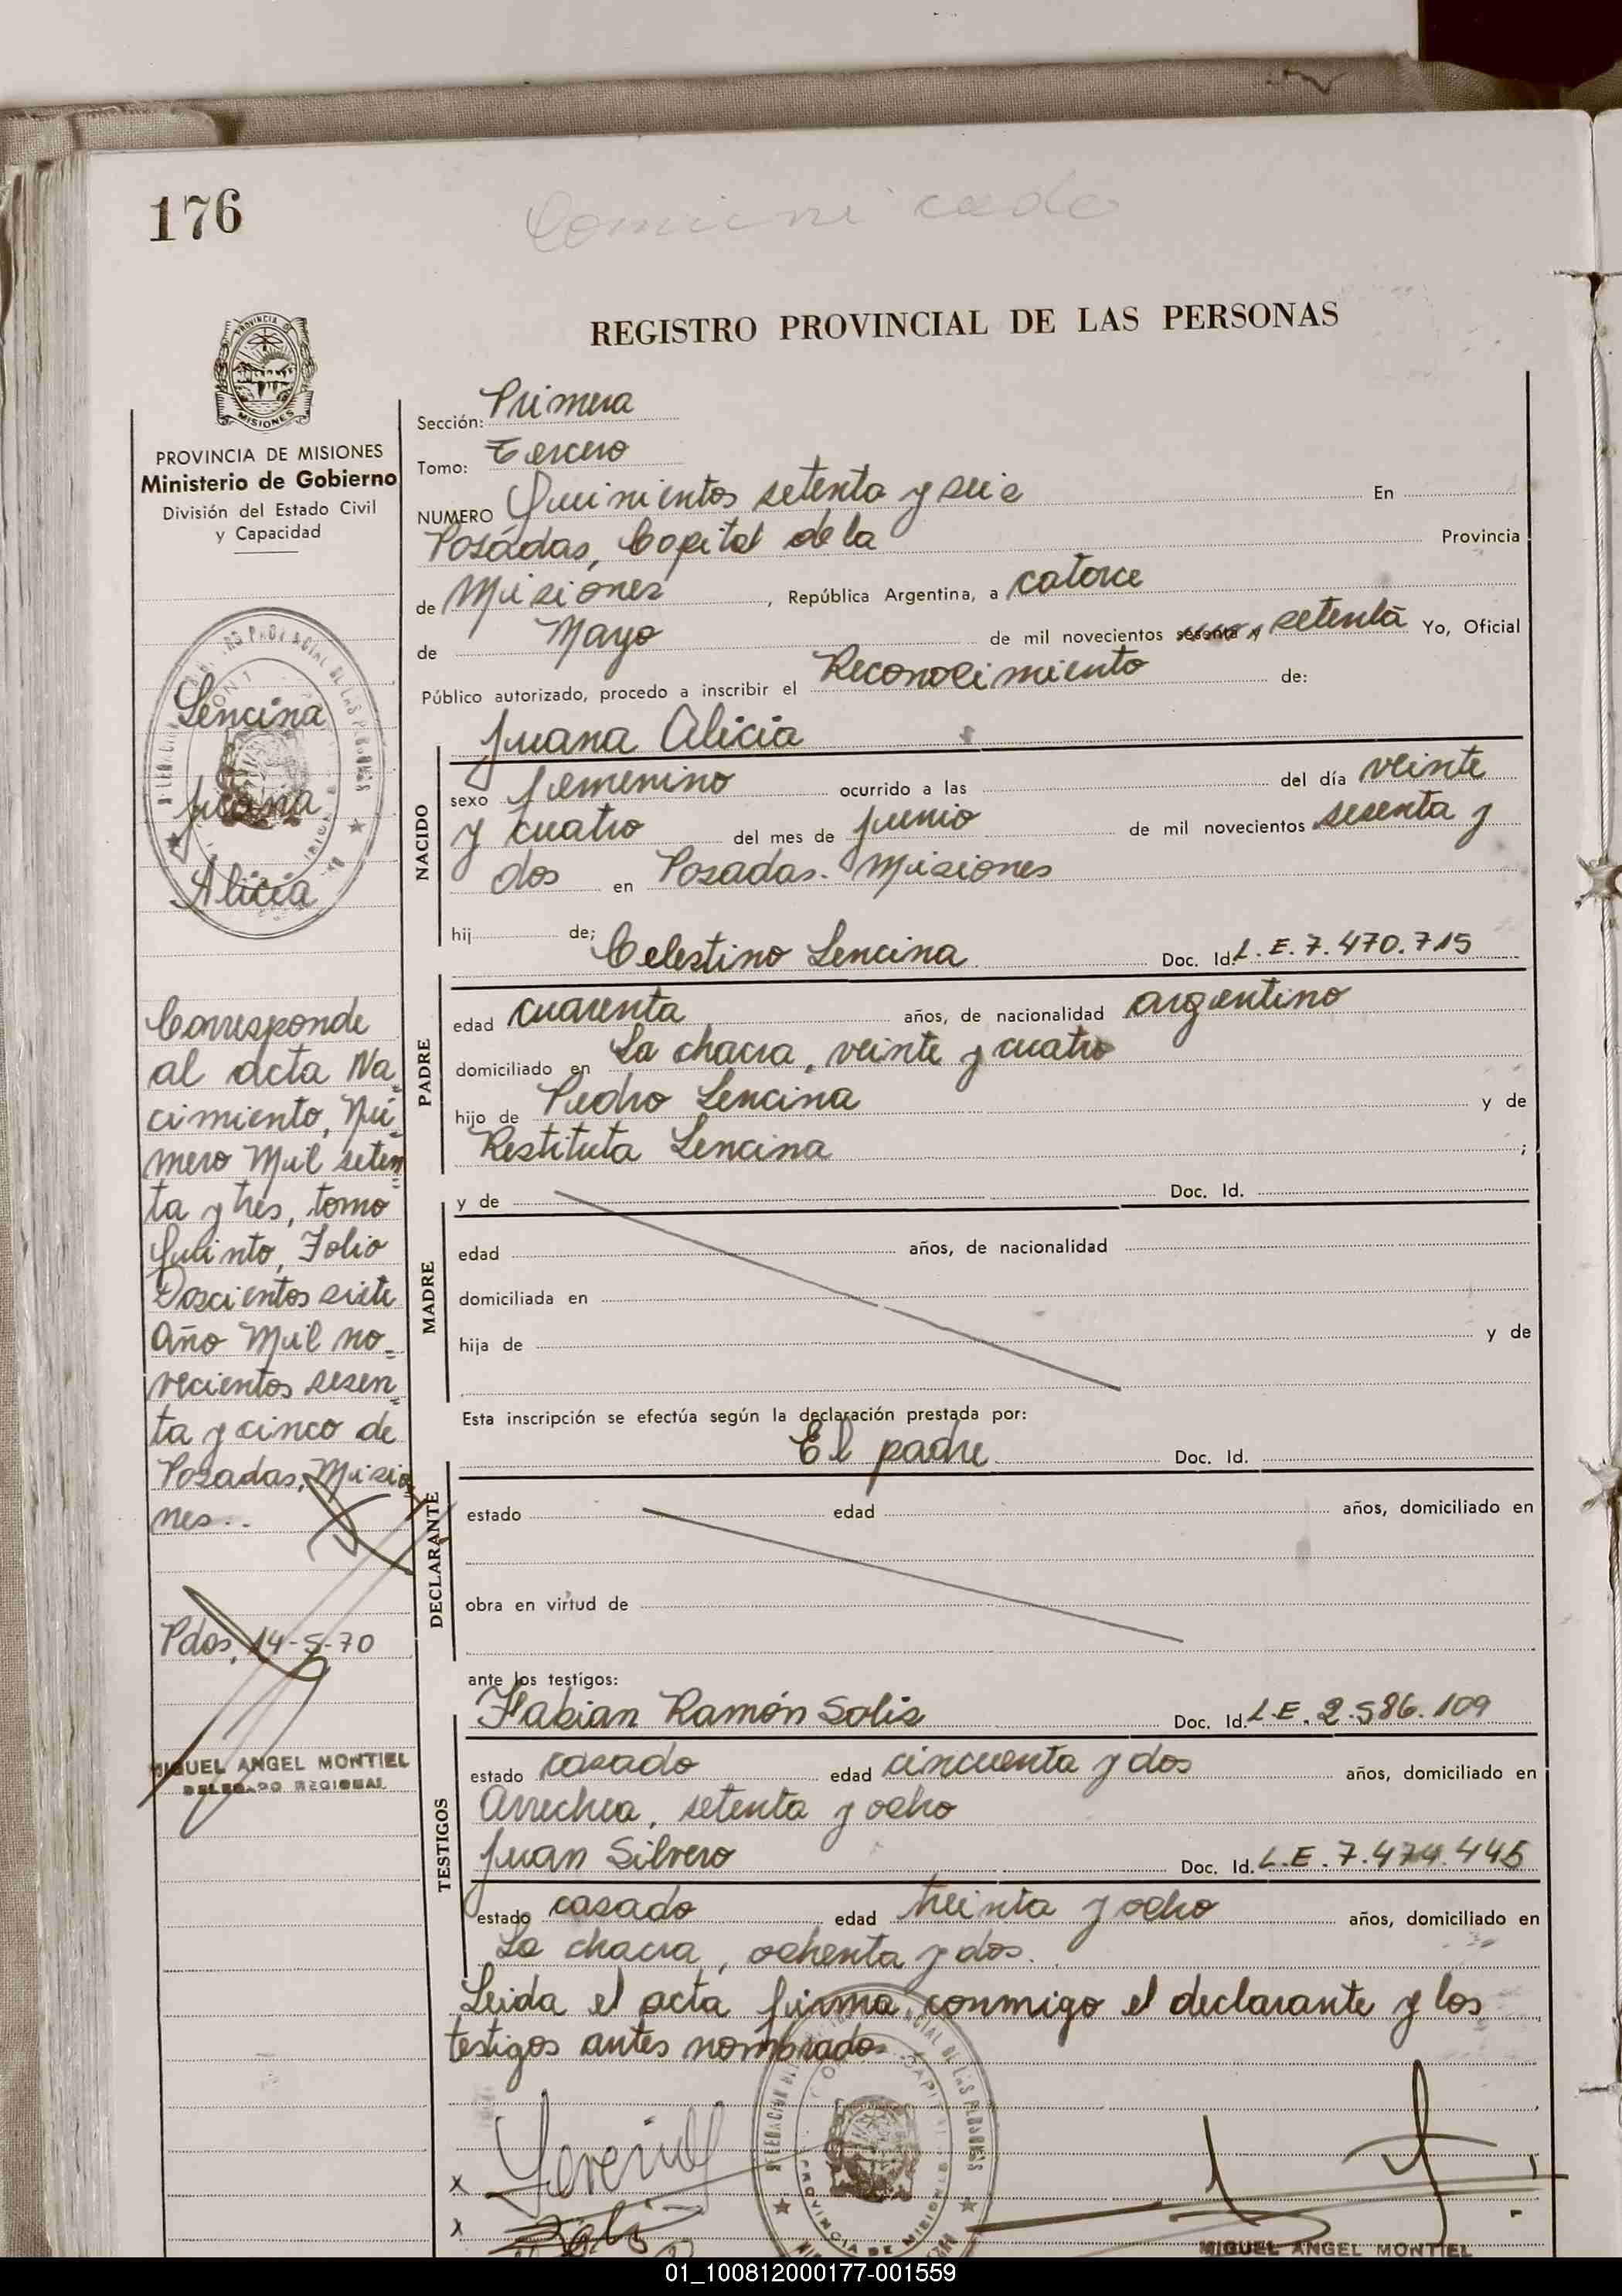 176
Comunicado
REGISTRO PROVINCIAL DE LAS PERSONAS
PROVINCIA DE MISIONES
Ministerio de Gobierno
División del Estado Civil
y Capacidad
Lencina
Juana
Alicia
Corresponde
al acta Na=
cimiento, Nú=
mero Mil seten=
ta y tres, tomo
Quinto, Folio
Doscientos siete
Año Mil no=
vecientos sesen=
ta y cinco de
Posadas, Misio
nes..
Pdas, 14-5-70
MIGUEL ANGEL MONTIEL
DELEGADO REGIONAL
Sección: Primera
Tomo: Tercero
NUMERO Quinientos setenta y seis En
Posadas, Capital de la Provincia
de Misiones, República Argentina, a catorce
de Mayo de mil novecientos sesenta y setenta Yo, Oficial
Público autorizado, procedo a inscribir el Reconocimiento de:
Juana Alicia
NACIDO
sexo femenino ocurrido a las del día veinte
y cuatro del mes de junio de mil novecientos sesenta y
dos en Posadas. Misiones
hij de; Celestino Lencina Doc. Id. L.E. 7.470.715
PADRE
edad cuarenta años, de nacionalidad argentino
domiciliado en La chacra, veinte y cuatro
hijo de Pedro Lencina y de
Restituta Lencina ;
y de Doc. Id.
MADRE
edad años, de nacionalidad
domiciliada en
hija de y de
Esta inscripción se efectúa según la declaración prestada por:
El padre Doc. Id.
DECLARANTE
estado edad años, domiciliado en
obra en virtud de
ante los testigos:
Fabian Ramón Solis Doc. Id. L.E. 2.586.109
TESTIGOS
estado casado edad cincuenta y dos años, domiciliado en
Arrechea, setenta y ocho
Juan Silvero Doc. Id. L.E. 7.474.445
estado casado edad treinta y ocho años, domiciliado en
La chacra, ochenta y dos.
Leida el acta firma conmigo el declarante y los
testigos antes nombrados
x
x
MIGUEL ANGEL MONTIEL
01_100812000177-001559